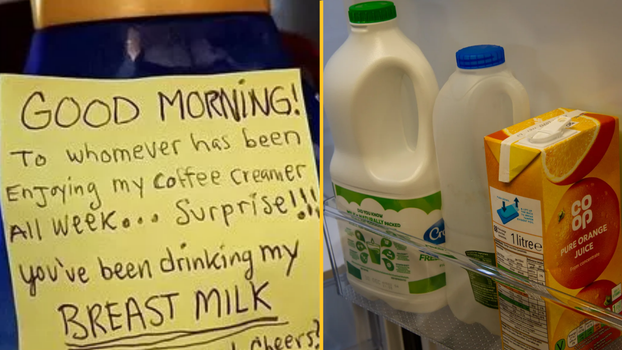 GOOD MORNING!
To whomever has been
Enjoying my coffee creamer
All week... Surprise!!!
you've been drinking my
BREAST MILK
Cheers!
DID YOU KNOW
CO
OP
1 litre
PURE ORANGE
JUICE